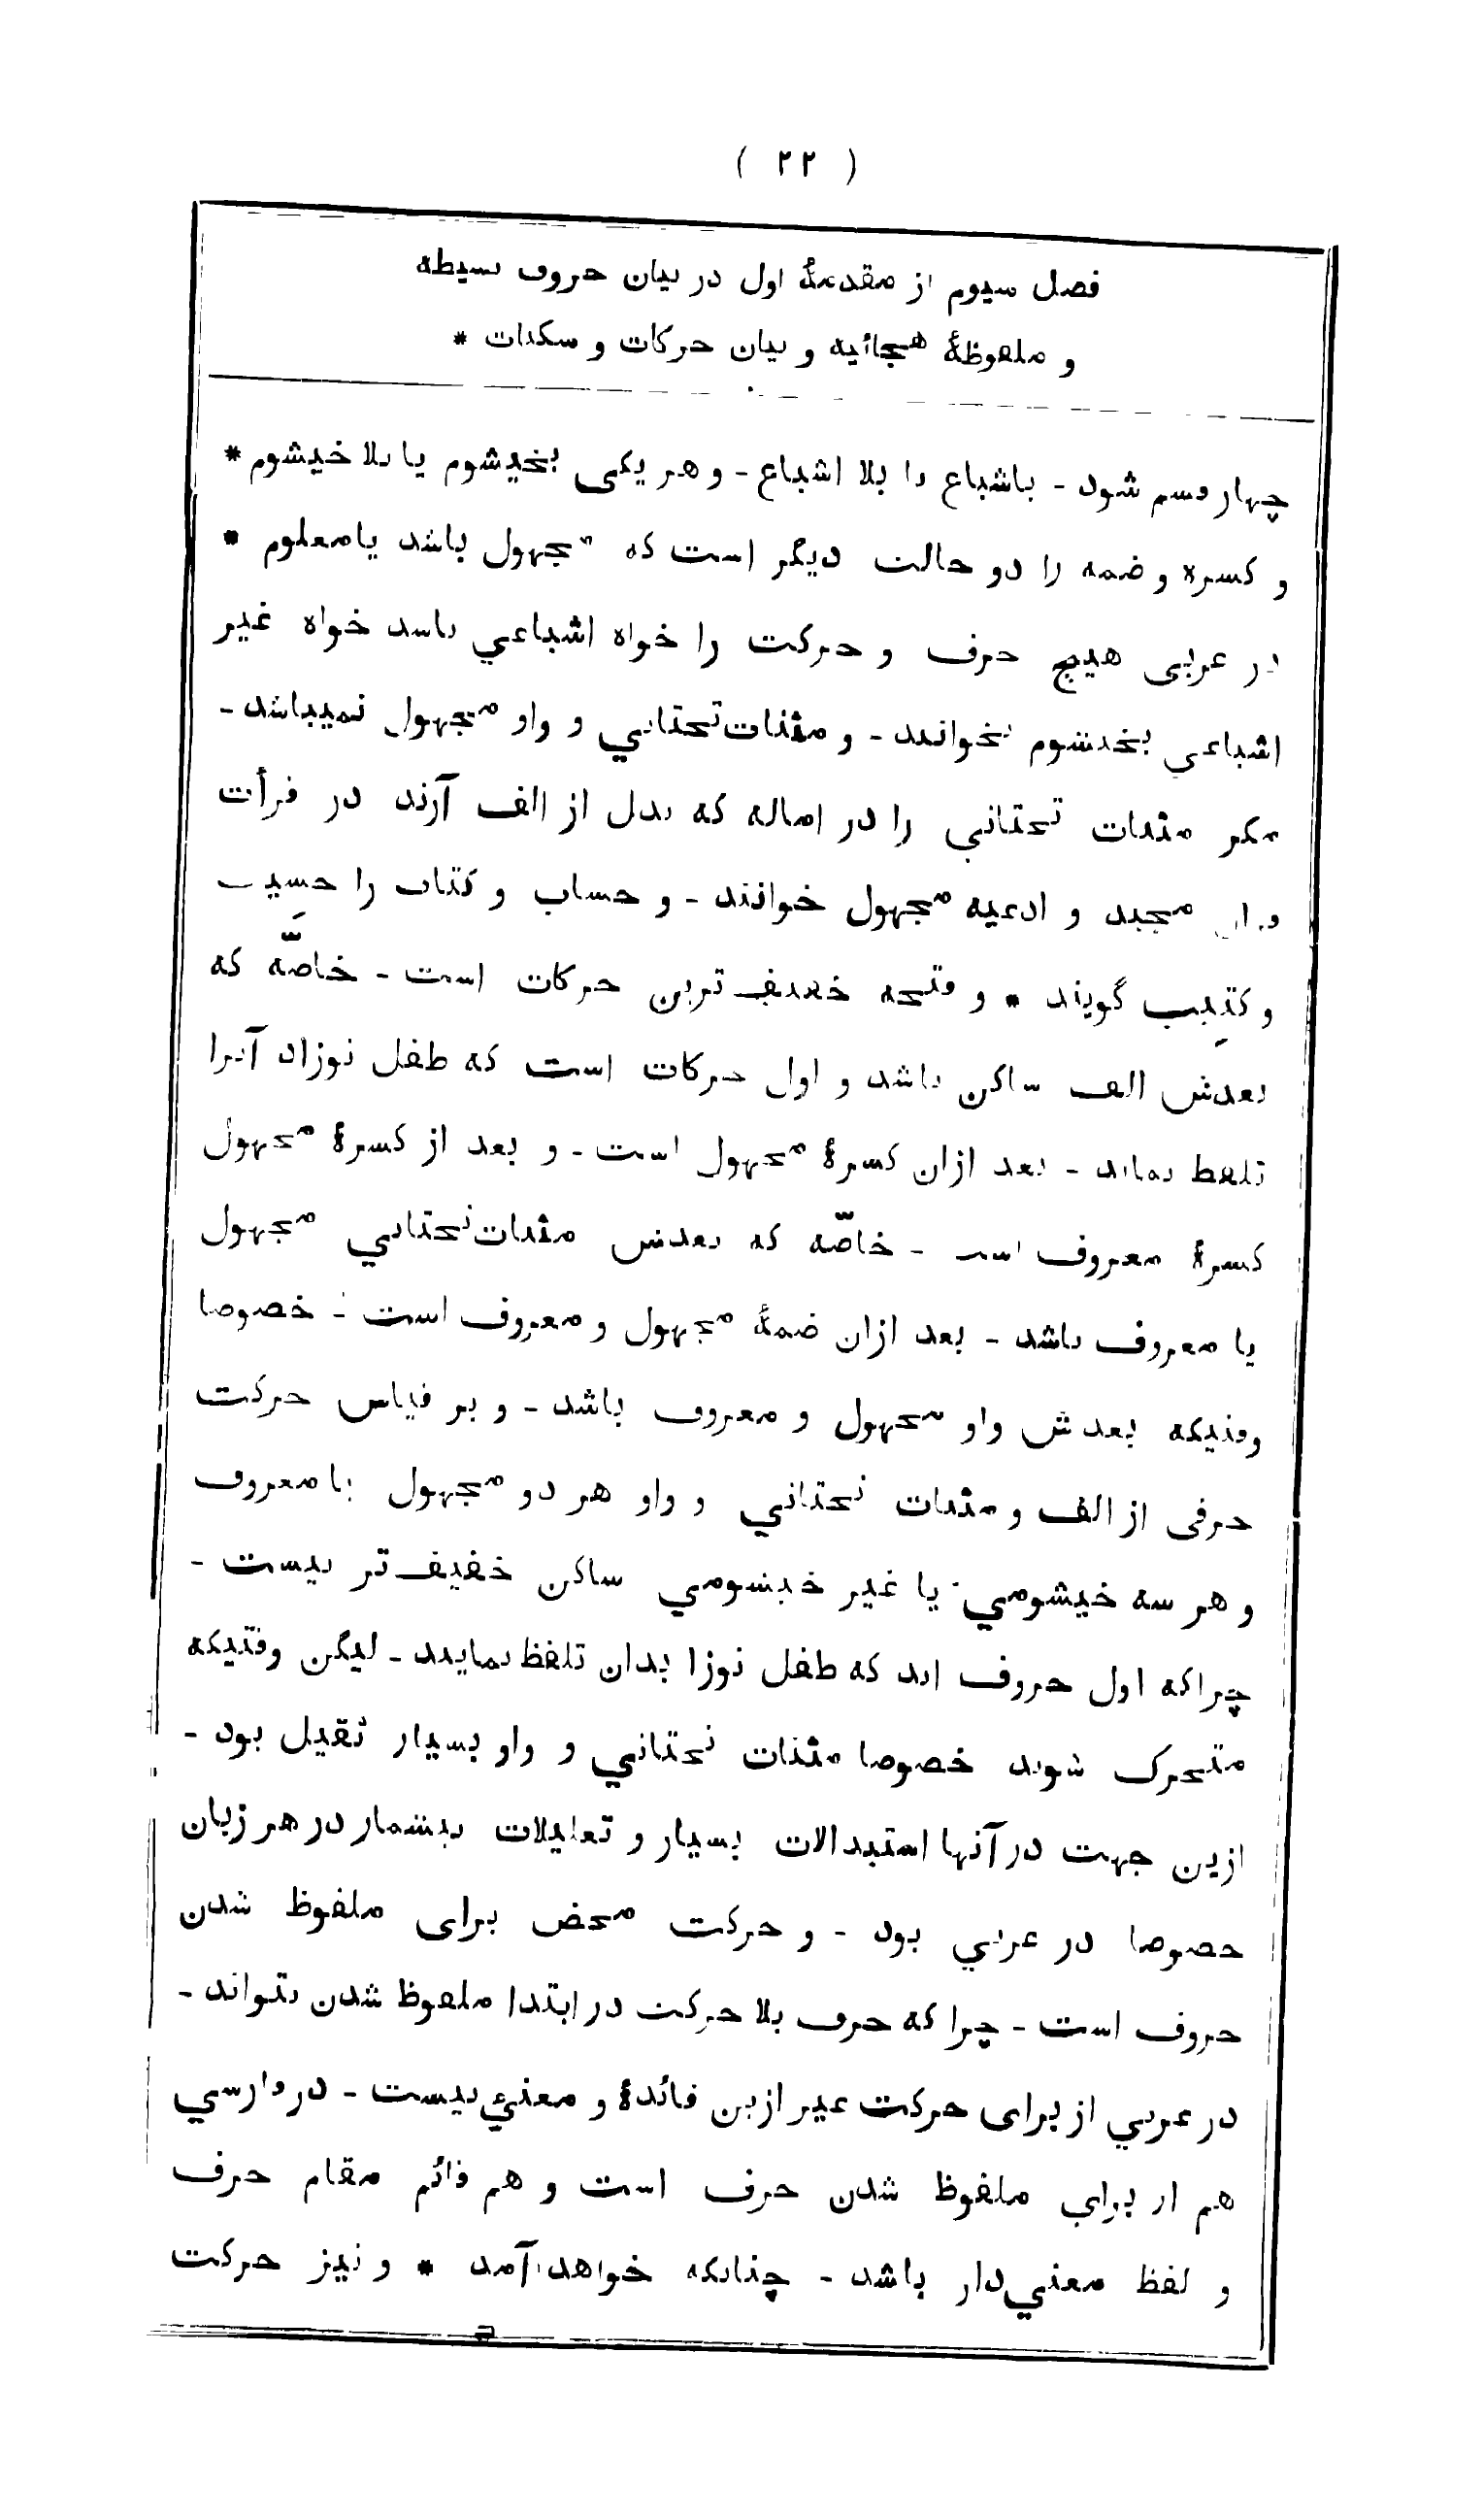 ( ۲۲ )
فصل سیوم از مقدمهٔ اول در بیان حروف بسیطه
و ملفوظهٔ هجائیه و بیان حرکات و سکنات *
چهار قسم شود - باشباع یا بلا اشباع - و هر یکی بخیشوم یا بلا خیشوم *
و کسره و ضمه را دو حالت دیگر است که مجهول باشد یا معلوم *
در عربی هیچ حرف و حرکت را خواه اشباعي باشد خواه غیر
اشباعي بخیشوم نخوانند - و مثنات تحتاني و واو مجهول نمیباشد -
مگر مثنات تحتاني را در اماله که بدل از الف آرند در قرأت
قران مجید و ادعیه مجهول خوانند - و حساب و کتاب را حسیب
و کتیب گویند * و فتحه خفیف ترین حرکات است - خاصّه که
بعدش الف ساکن باشد و اول حرکات است که طفل نوزاد آنرا
تلفظ نماید - بعد ازان کسرهٔ مجهول است - و بعد از کسرهٔ مجهول
کسرهٔ معروف است - خاصّه که بعدش مثنات تحتاني مجهول
یا معروف باشد - بعد ازان ضمهٔ مجهول و معروف است - خصوصا
وقتیکه بعدش واو مجهول و معروف باشد - و بر قیاس حرکت
حرفی از الف و مثنات تحتاني و واو هر دو مجهول یا معروف
و هر سه خیشومي یا غیر خیشومي ساکن خفیف تر نیست -
چراکه اول حروف اند که طفل نوزا بدان تلفظ نمایند - لیکن وقتیکه
متحرک شوند خصوصا مثنات تحتاني و واو بسیار ثقیل بود -
ازین جهت در آنها استبدالات بسیار و تعلیلات بیشمار در هر زبان
خصوصا در عربي بود - و حرکت محض برای ملفوظ شدن
حروف است - چرا که حرف بلا حرکت در ابتدا ملفوظ شدن نتواند -
در عربي از برای حرکت غیر ازین فائدهٔ و معنئ نیست - در فارسي
هم از برای ملفوظ شدن حرف است و هم قائم مقام حرف
و لفظ معني‌دار باشد - چنانکه خواهد آمد * و نیز حرکت